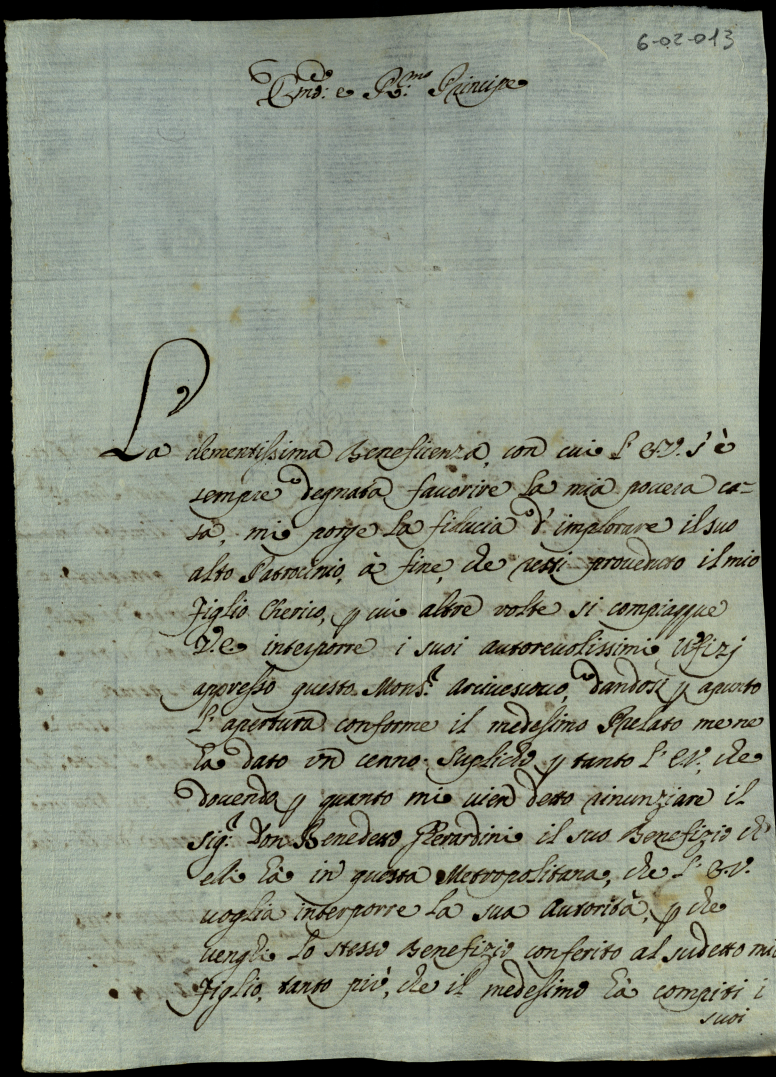 6-02-013
Emo: e Rmo: Principe
La clementissima Beneficenza, con cui l'E.V. s'è
sempre degnata favorire la mia povera ca-
sa, mi porge la fiducia d'implorare il suo
alto Patrocinio, à fine, che resti proveduto il mio
Figlio Cherico, p cui altre volte si compiacque
V.E. interporre i suoi autorevolissimi Ufizj
appresso questo Monsr. Arcivescovo, dandosi p apunto
l'apertura conforme il medesimo Prelato me ne
hà dato un cenno. Supplico p tanto l'E.V. che
dovendo p quanto mi vien detto rinunziare il
sigr. Don Benedetto Gherardini il suo Benefizio ch'
eli hà in questa Metropolitana, che l'E.V.
voglia interporre la sua Autorità, p che
venghi lo stesso Benefizio conferito al sudetto mio
Figlio, tanto più, che il medesimo hà compiti i
suoi